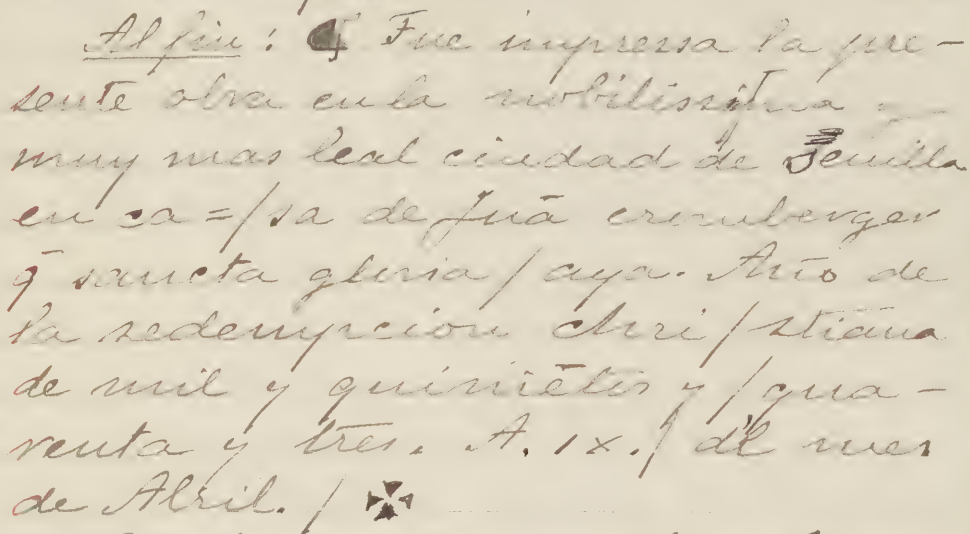 Al fin: ¶ Fue impressa la pre-
sente obra en la nobilissima y
muy mas leal ciudad de Seuilla
en ca=/sa de Juā cromberger
q̄ sancta gloria / aya. Año de
la redempcion chri/stiana
de mil y quiniētos y / qua-
renta y tres. A. ix./ del mes
de Abril. / ✠